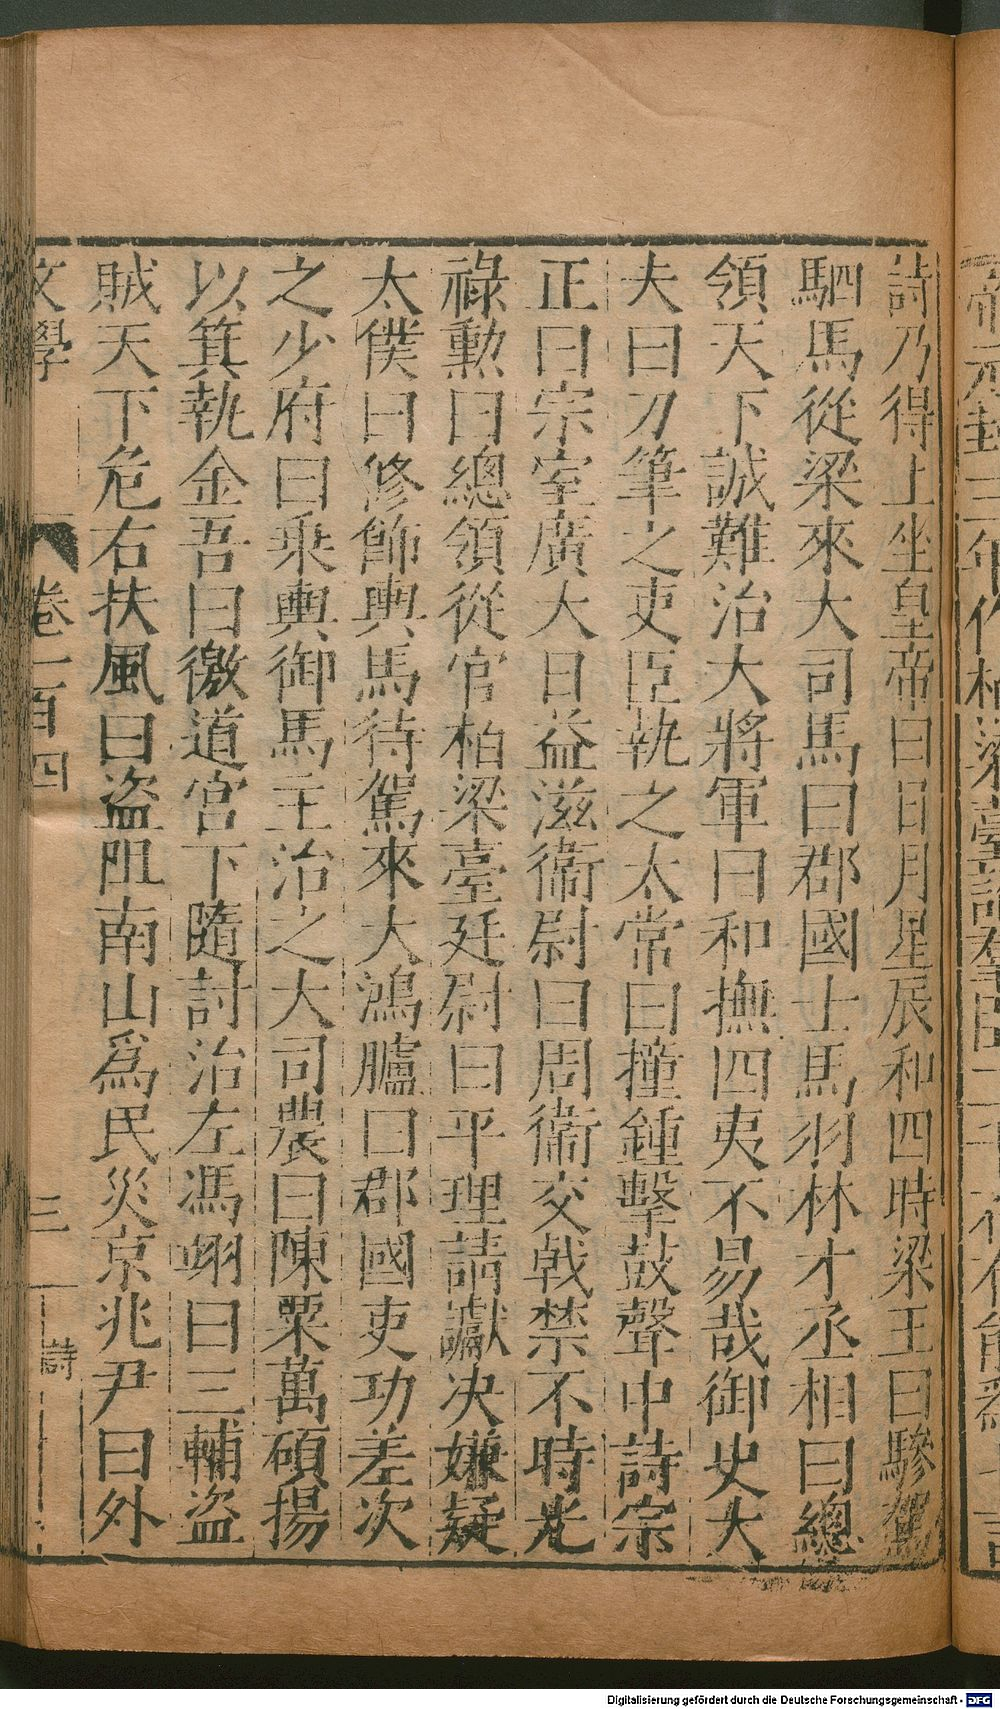 詩乃得上坐皇帝曰日月星辰和四時梁王曰驂駕
駟馬從梁來大司馬曰郡國士馬羽林才丞相曰總
領天下誠難治大將軍曰和撫四夷不易哉御史大
夫曰刀筆之吏臣執之太常曰撞鍾擊鼓聲中詩宗
正曰宗室廣大日益滋衞尉曰周衞交戟禁不時光
祿勳曰總領從官柏梁臺廷尉曰平理請讞决嫌疑
太僕曰修飾輿馬待駕來大鴻臚曰郡國吏功差次
之少府曰乗輿御馬主治之大司農曰陳粟萬碩揚
以箕執金吾曰徼道宮下隨討治左馮翊曰三輔盜
賊天下危右扶風曰盜阻南山爲民災京兆尹曰外
文學 卷一百四 三 詩
Digitalisierung gefördert durch die Deutsche Forschungsgemeinschaft - DFG